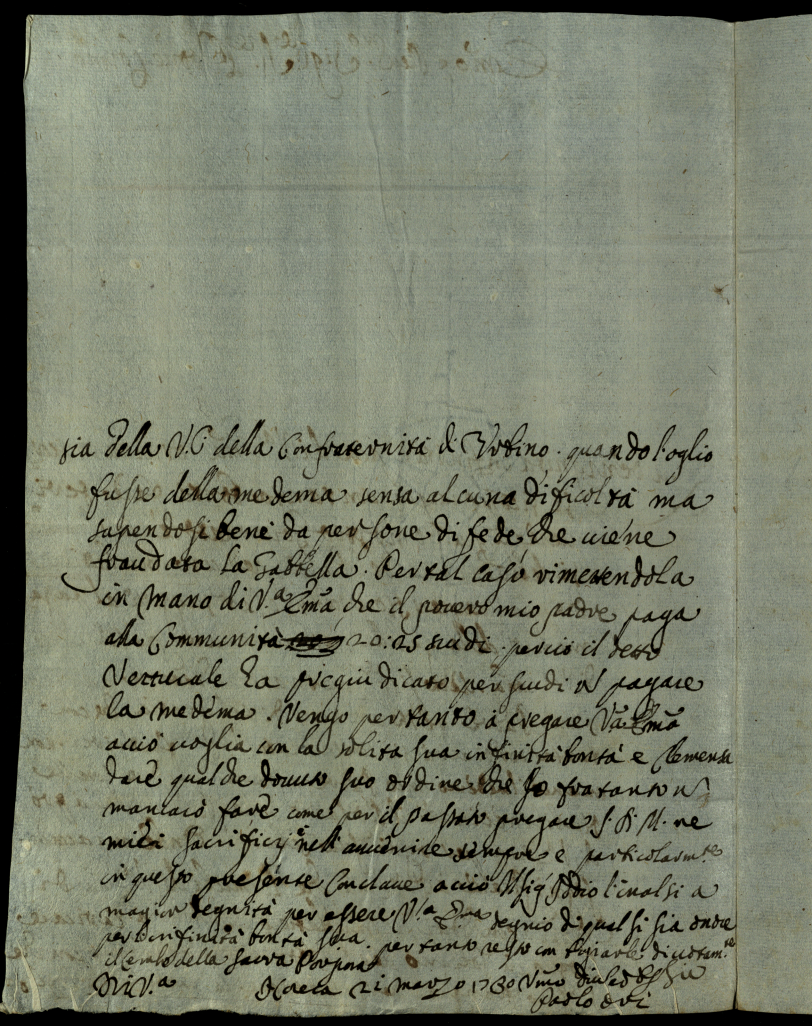 sia della V. C. della Confraternità di Urbino. quando l'oglio
fusse della medema sensa alcuna dificoltà ma
sapendosi bene da persone di fede che viene
fraudata la Gabbella. Per tal caso rimettendola
in mano di V.a Em̃a che il povero mio padre paga
alla Communità 20:25 scudi. perciò il detto
Vetturale ha pregiudicato per scudi pagare
la medema. Vengo per tanto a pregare V.a Em̃a
acciò voglia con la solita sua infinità bontà e Clemensa
dare qualche dovuto suo ordine che Io fratanto ñ
mancarò fare come per il passato pregare S. D. M. ne
miei sacrificij e nell'avvenire sempre e particolarm.te
in questo presente Conclave acciò Iddio l'inalsi a
magior degnità per essere V.a Em̃a degnio di qual si sia onore
per l'infinità bontà sua. per tanto resto con divotam.te
il lembo della Sacra Porpora
Di V.a 21 marzo 1730
Paolo